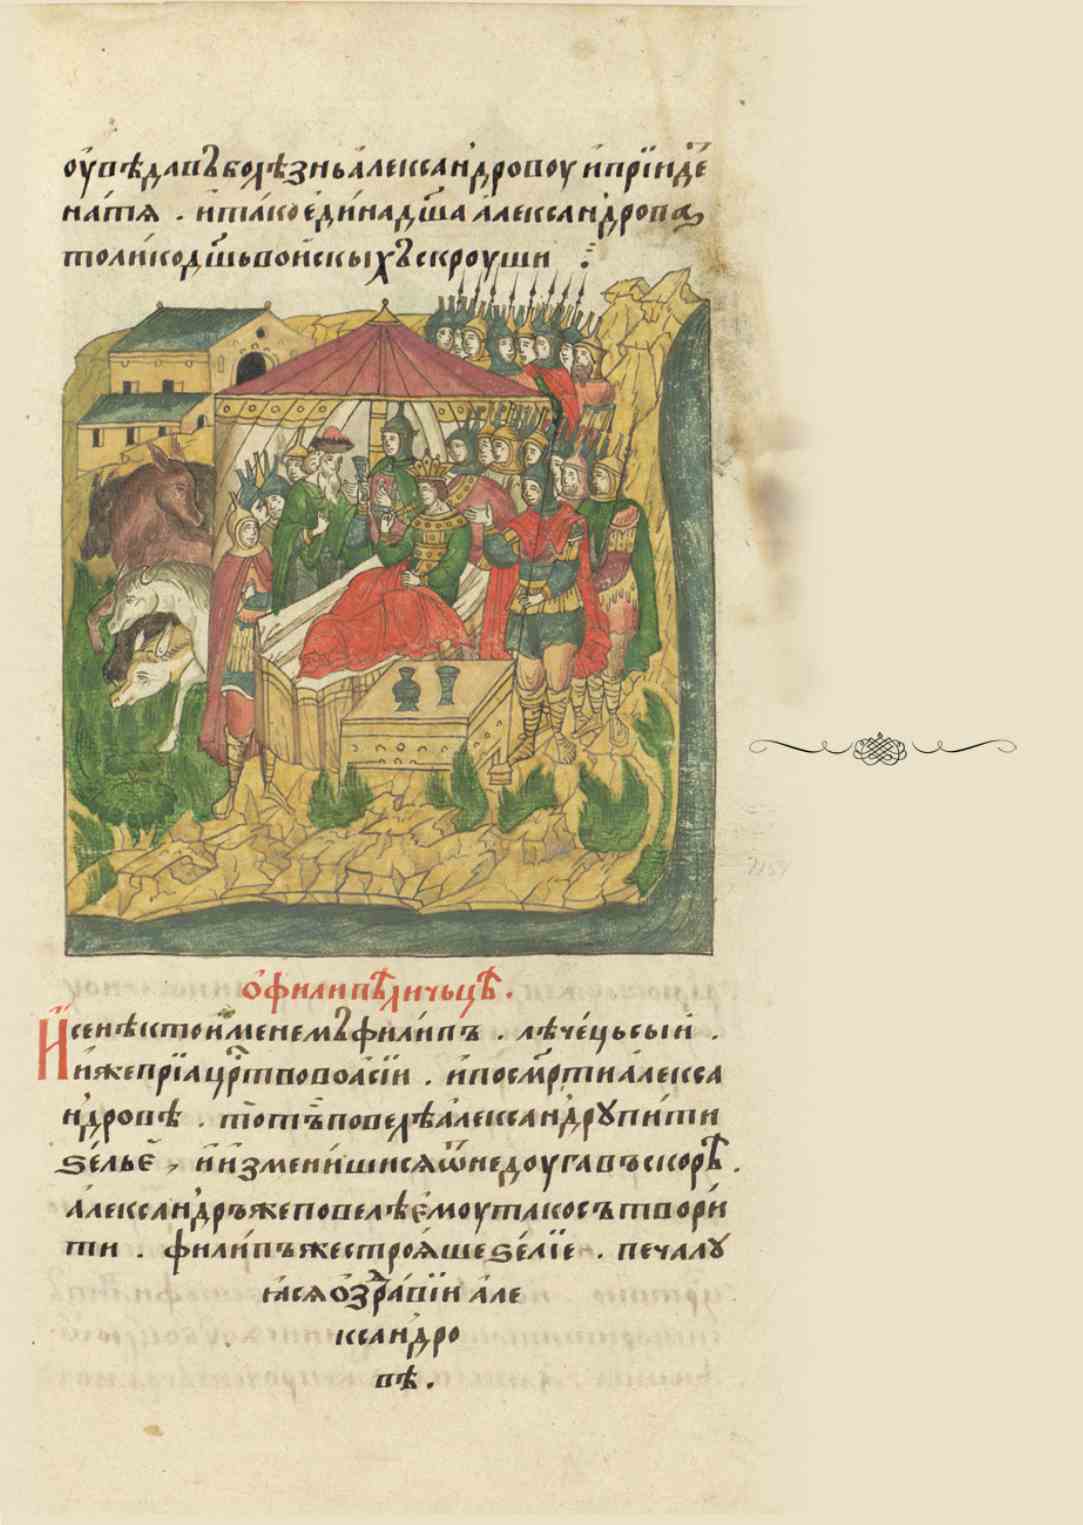 оувѣдавъ болѣзнь александровоу и прїиде
на тѧ . и тако едина дш҃а александрова
толико дш҃ь воискыхъ скроуши
о филипѣ личьцѣ .
И се нѣкто именемъ филипъ . лѣчець сыи .
иже прїа црⷭ҇тво во асїи . и по смр҃ти алекса
ндровѣ . тотъ повелѣ александрꙋ пити
ѕелье , и изменишисѧ ѿ недоуга въскорѣ .
александръ же повелѣ емоу тако сътвори
ти . филипъ же строѧше ѕелїе . печалꙋ
ꙗсѧ о здравїи але
ксандро
вѣ .